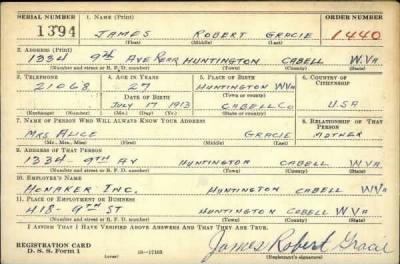 SERIAL NUMBER 1. NAME (Print) ORDER NUMBER
1394 JAMES ROBERT GRACIE 1440
(First) (Middle) (Last)
2. ADDRESS (Print)
1334 9th AVE REAR HUNTINGTON CABELL W.VA
(Number and street or R. F. D. number) (Town) (County) (State)
3. TELEPHONE 4. AGE IN YEARS 5. PLACE OF BIRTH 6. COUNTRY OF CITIZENSHIP
21068 27 HUNTINGTON WVA
DATE OF BIRTH (Town or county)
JULY 17 1913 CABELL CO USA
(Exchange) (Number) (Mo.) (Day) (Yr.) (State or country)
7. NAME OF PERSON WHO WILL ALWAYS KNOW YOUR ADDRESS 8. RELATIONSHIP OF THAT PERSON
MRS ALICE GRACIE MOTHER
(Mr., Mrs., Miss) (First) (Middle) (Last)
9. ADDRESS OF THAT PERSON
1334 9TH AV HUNTINGTON CABELL WVA.
(Number and street or R. F. D. number) (Town) (County) (State)
10. EMPLOYER'S NAME
INC. HUNTINGTON CABELL WVA
11. PLACE OF EMPLOYMENT OR BUSINESS
418- 9TH ST HUNTINGTON CABELL WVA
(Number and street or R. F. D. number) (Town) (County) (State)
I AFFIRM THAT I HAVE VERIFIED ABOVE ANSWERS AND THAT THEY ARE TRUE.
REGISTRATION CARD
D. S. S. Form 1 (over) 16—17105 James Robert Gracie
(Registrant's signature)